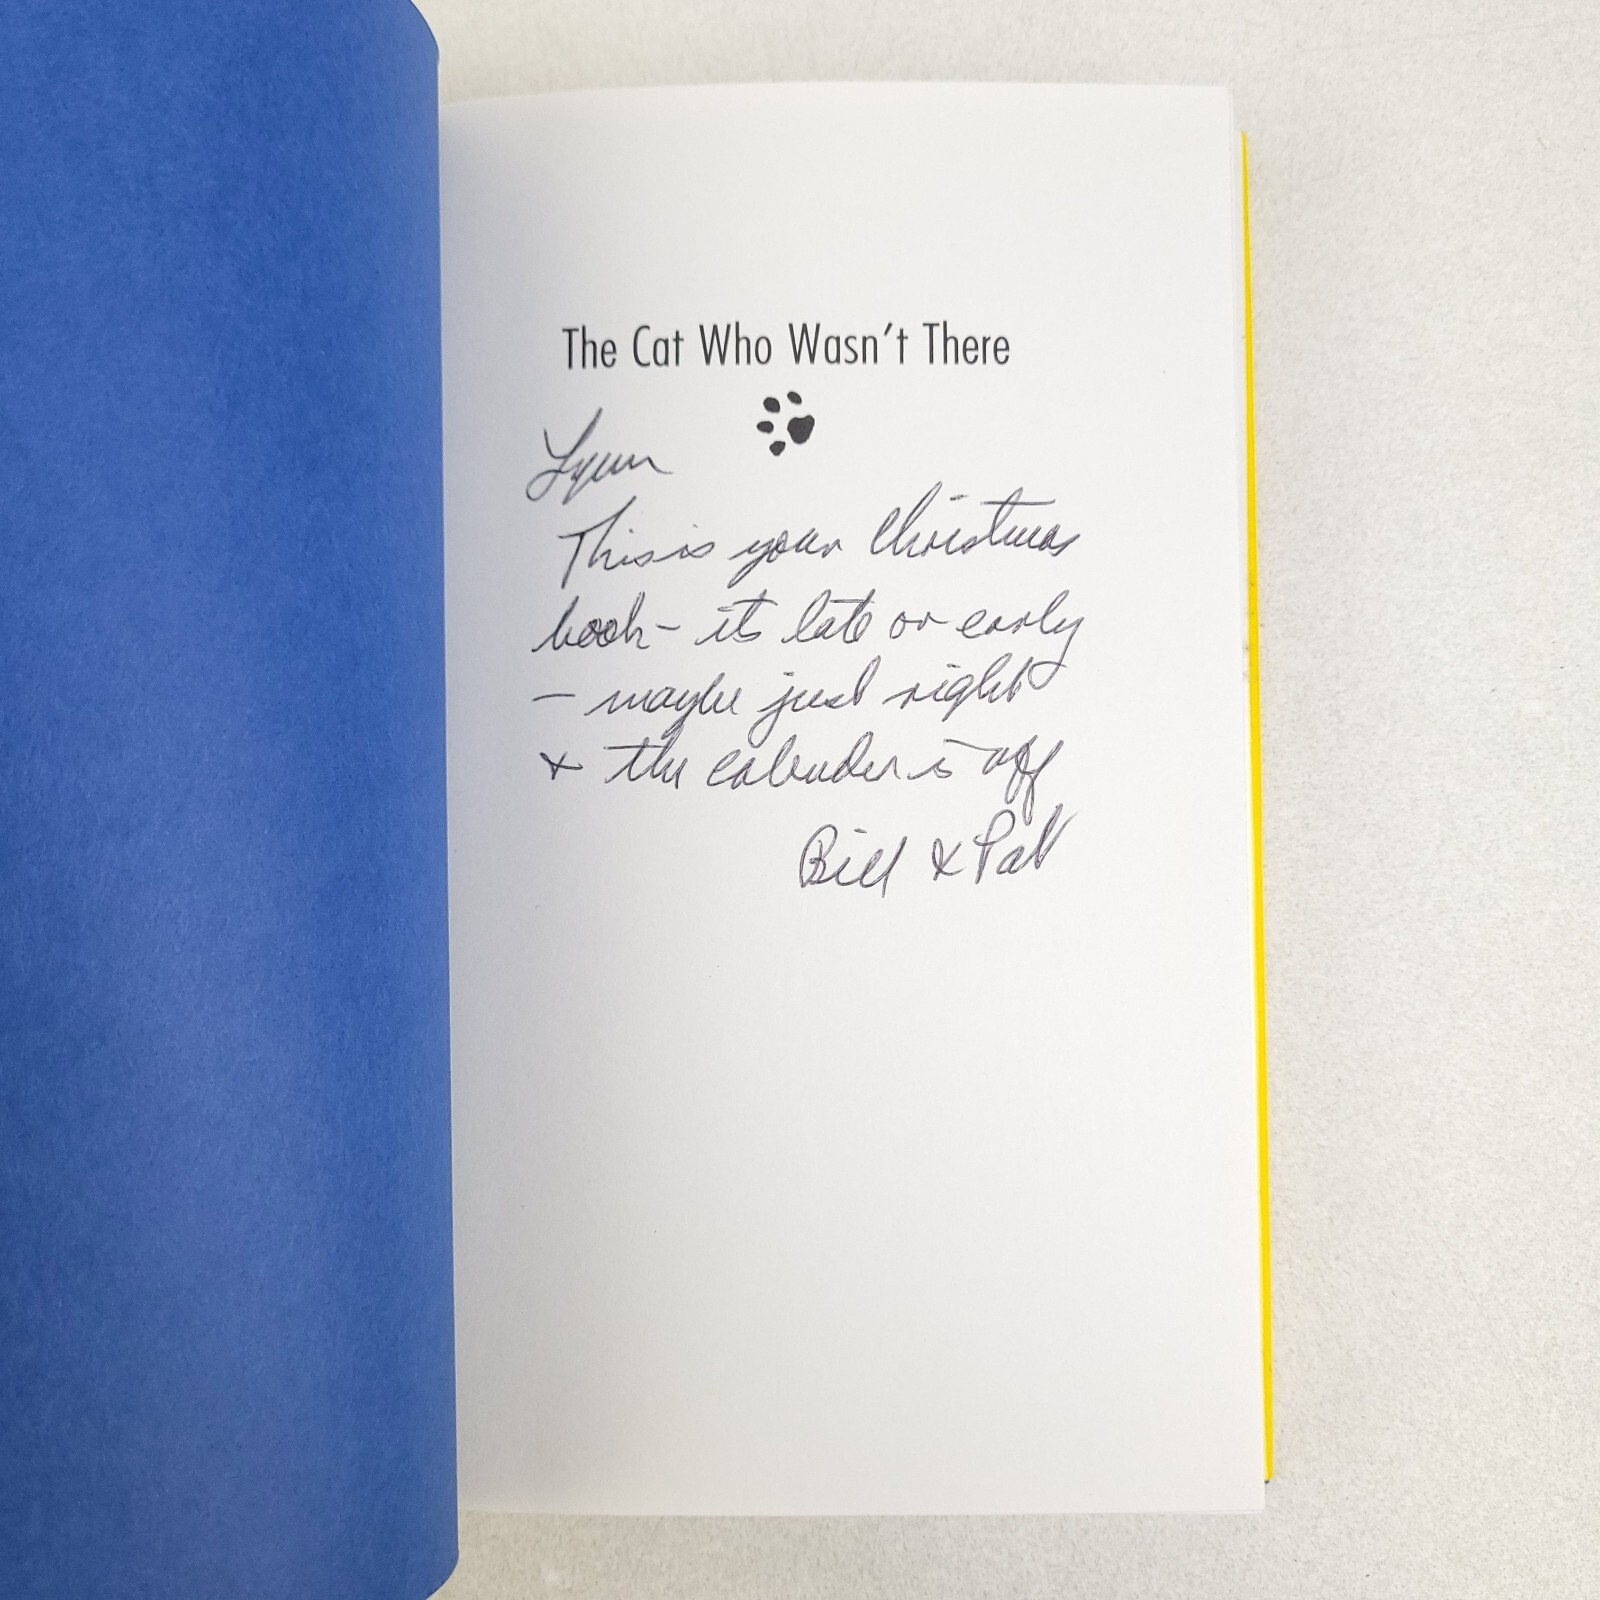 The Cat Who Wasn't There
Lynn
This is your Christmas
book - its late or early
- maybe just right
& the calender is off
Bill & Pat